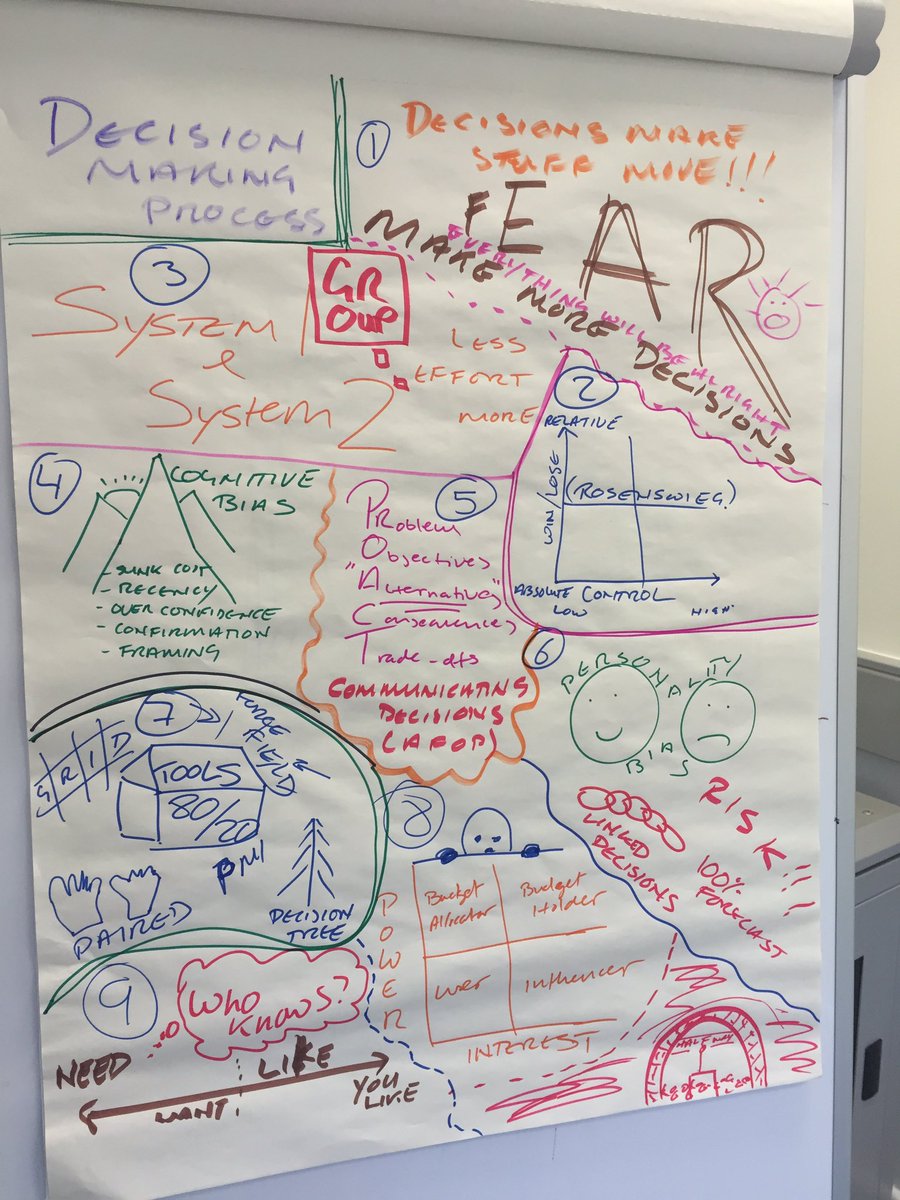 DECISION
MAKING
PROCESS
1
DECISIONS MAKE
STUFF MOVE!!!
FEAR
EVERYTHING WILL BE ALRIGHT
MAKE MORE DECISIONS
3
SYSTEM 1
&
SYSTEM 2
GR
OUP
LESS
EFFORT
MORE
2
RELATIVE
WIN/LOSE
(ROSENSWIEG)
ABSOLUTE CONTROL
LOW
HIGH
4
COGNITIVE
BIAS
- SUNK COST
- RECENCY
- OVER CONFIDENCE
- CONFIRMATION
- FRAMING
5
PROblem
Objectives
"Alternatives"
Consequences
Trade-offs
COMMUNICATING
DECISIONS
(AFOP)
6
PERSONALITY
BIAS
RISK!!!
LINKED
DECISIONS
100%
FORECAST
7
FORCE
FIELD
GRID
TOOLS
80/20
PMI
PAIRED
DECISION
TREE
8
POWER
Budget
Allocator
Budget
Holder
User
Influencer
INTEREST
HALF WAY
9
WHO
KNOWS?
NEED
LIKE
WANT
YOU
LIVE